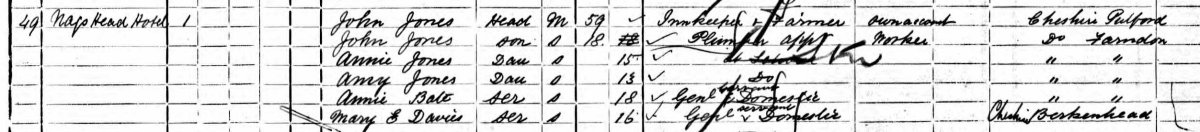 49 Nags Head Hotel 1 John Jones Head M 59 Innkeeper & Farmer own account Cheshire Pulford
John Jones son s 18 Plumber app Worker Do Farndon
Annie Jones Dau s 15 " "
Amy Jones Dau s 13 Do " "
Annie Bate Ser s 18 Genl servant Domestic " "
Mary E Davies Ser s 16 Genl servant Domestic Cheshire Berkenhead